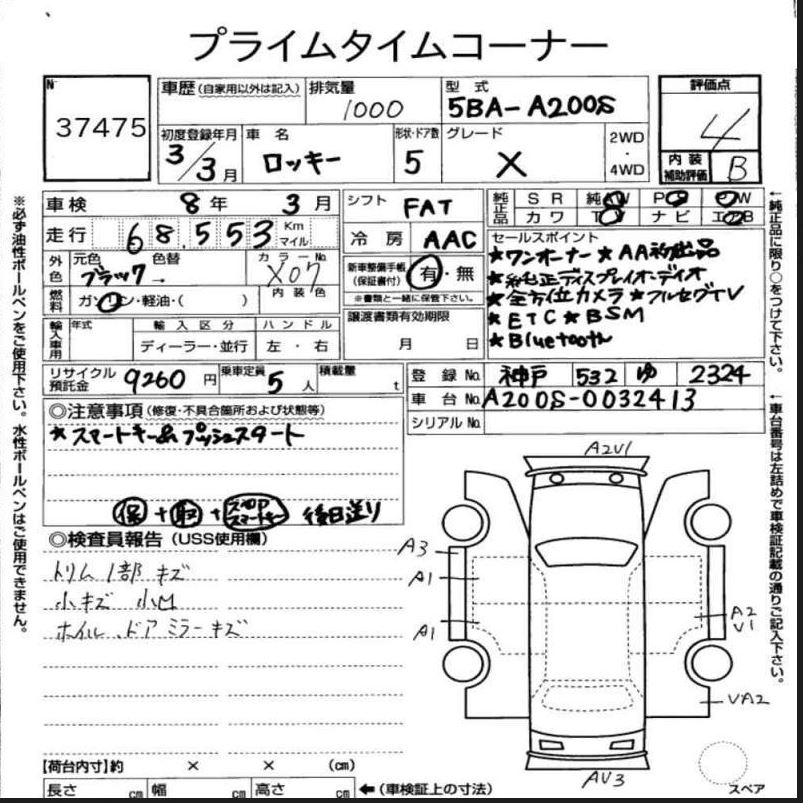 プライムタイムコーナー
No 37475
車歴(自家用以外は記入)
排気量 1000
型式 5BA-A200S
評価点 4
初度登録年月 3/3月
車名 ロッキー
形状・ドア数 5
グレード X
2WD・4WD
内装補助評価 B
車検 8年 3月
走行 68,553 Km マイル
シフト FAT
冷房 AAC
純正品 SR 純AW PS PW
カワ TV ナビ エアB
外色 元色 ブラック 色替 → カラーNo. X07
燃料 ガソリン・軽油・( ) 内装色
新車整備手帳(保証書付) 有・無
※書類と一緒に保管下さい。
セールスポイント
★ワンオーナー ★AA初出品
★純正ディスプレイオーディオ
★全方位カメラ ★フルセグTV
★ETC ★BSM
★Bluetooth
輸入車用 年式 輸入区分 ハンドル
ディーラー・並行 左・右
譲渡書類有効期限
月 日
リサイクル預託金 9260円 乗車定員 5人 積載量 t
登録No. 神戸 532 ゆ 2324
車台No. A200S-0032413
シリアルNo.
◎注意事項(修復・不具合箇所および状態等)
★スマートキー& プッシュスタート
保+取+スペアスマートキー 後日送り
◎検査員報告(USS使用欄)
トリム1部キズ
小キズ 小凹
ホイル、ドアミラーキズ
A2V1
A3
A1
A1
A2
V1
VA2
AV3
スペア
【荷台内寸】約 × × (cm)
長さ cm 幅 cm 高さ cm ←(車検証上の寸法)
※必ず油性ボールペンをご使用下さい。水性ボールペンはご使用できません。
←純正品に限り○をつけて下さい。
←車台番号は左詰めで車検証記載の通りご記入下さい。